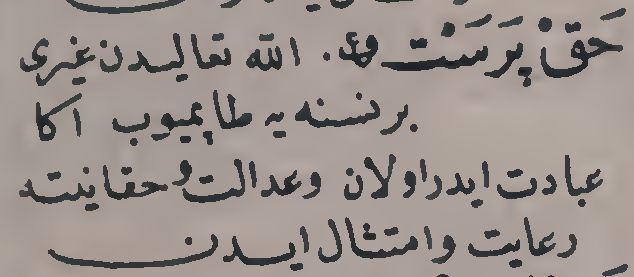 حَقْ پَرَسْت وع. الله تعاليدن غيرى
بر نسنه يه طاپميوب اكا
عبادت ايدر اولان وعدالت وحقانيته
رعايت وامتثال ايدن